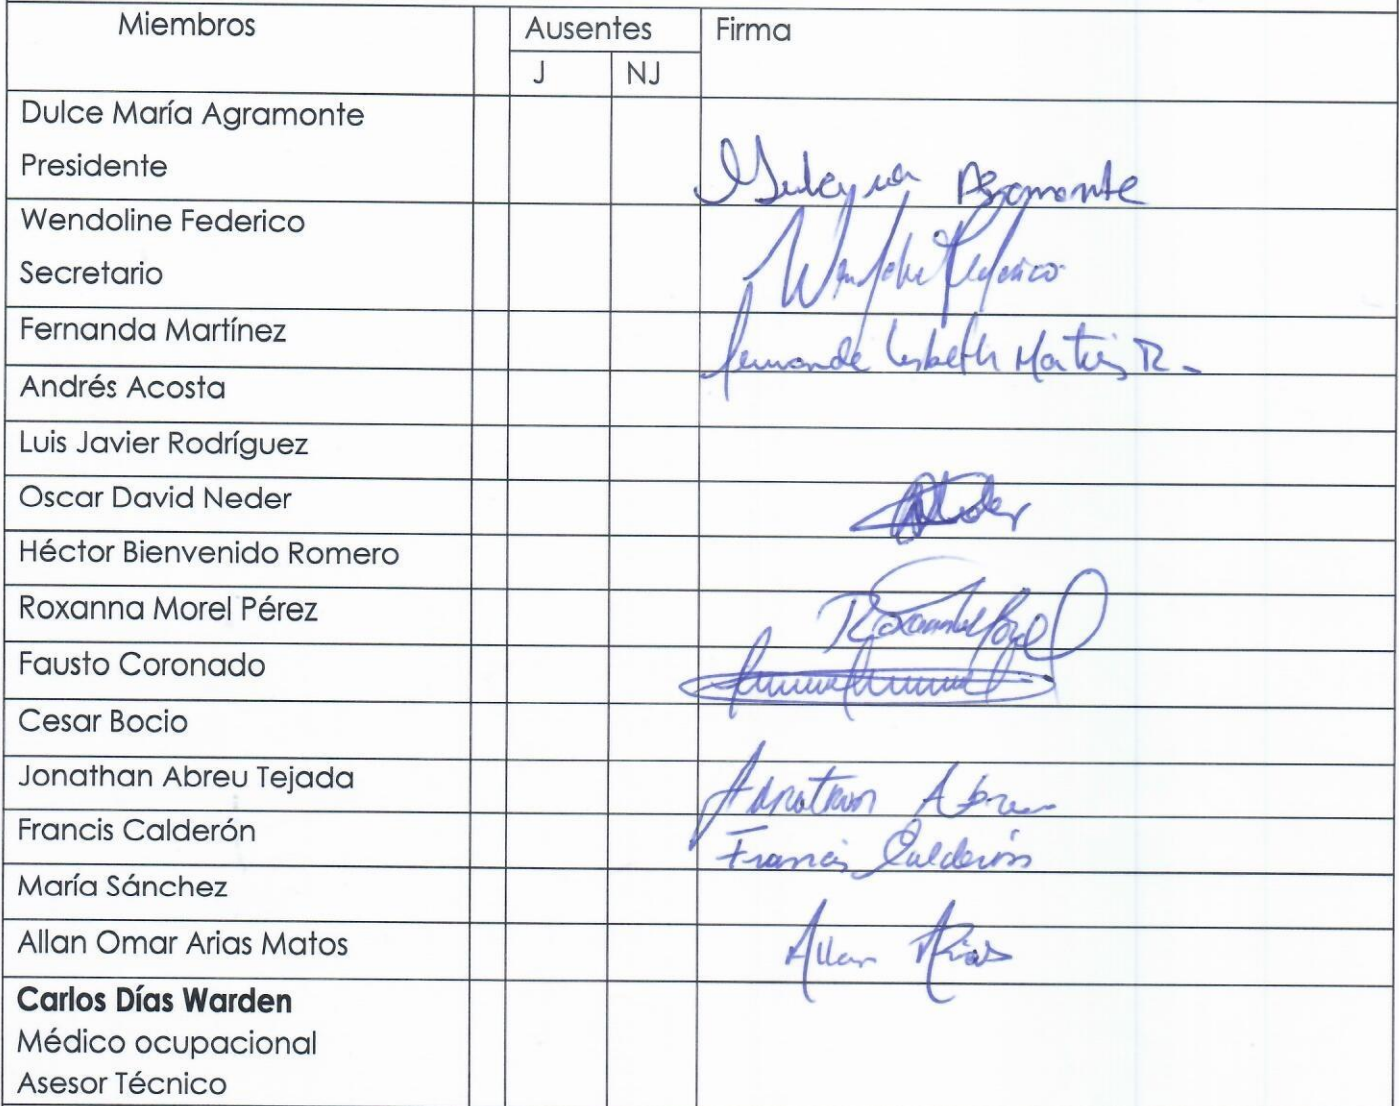 Miembros Ausentes Firma
J NJ
Dulce María Agramonte
Presidente
Agramonte
Wendoline Federico
Secretario
Federico
Fernanda Martínez
Lisbeth R.
Andrés Acosta
Luis Javier Rodríguez
Oscar David Neder
Héctor Bienvenido Romero
Roxanna Morel Pérez
Fausto Coronado
Cesar Bocio
Jonathan Abreu Tejada Jonathan Abreu
Francis Calderón Francis Calderón
María Sánchez
Allan Omar Arias Matos Allan Arias
Carlos Días Warden
Médico ocupacional
Asesor Técnico